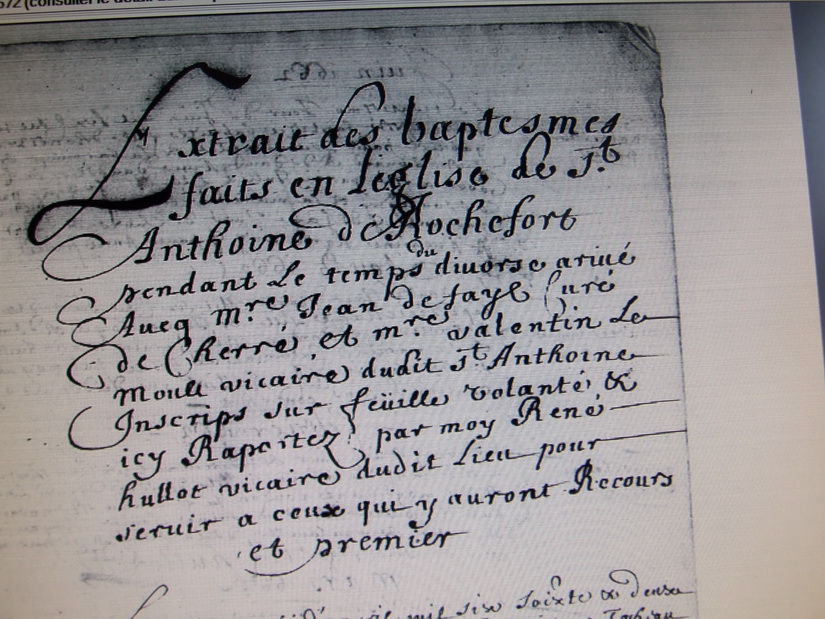 Extrait des baptesmes
faits en Leglise de st
Anthoine de Rochefort
pendant Le temps du diuorse ariué
Aueq mre Jean de faye Curé
de Cherré, et mre valentin Le
Moull vicaire dudit st Anthoine
Inscrips sur feüille volante &
icy Raportez par moy René
hullot vicaire dudit Lieu pour
seruir a ceux qui y auront Recours
et premier
mil six soixte & deux